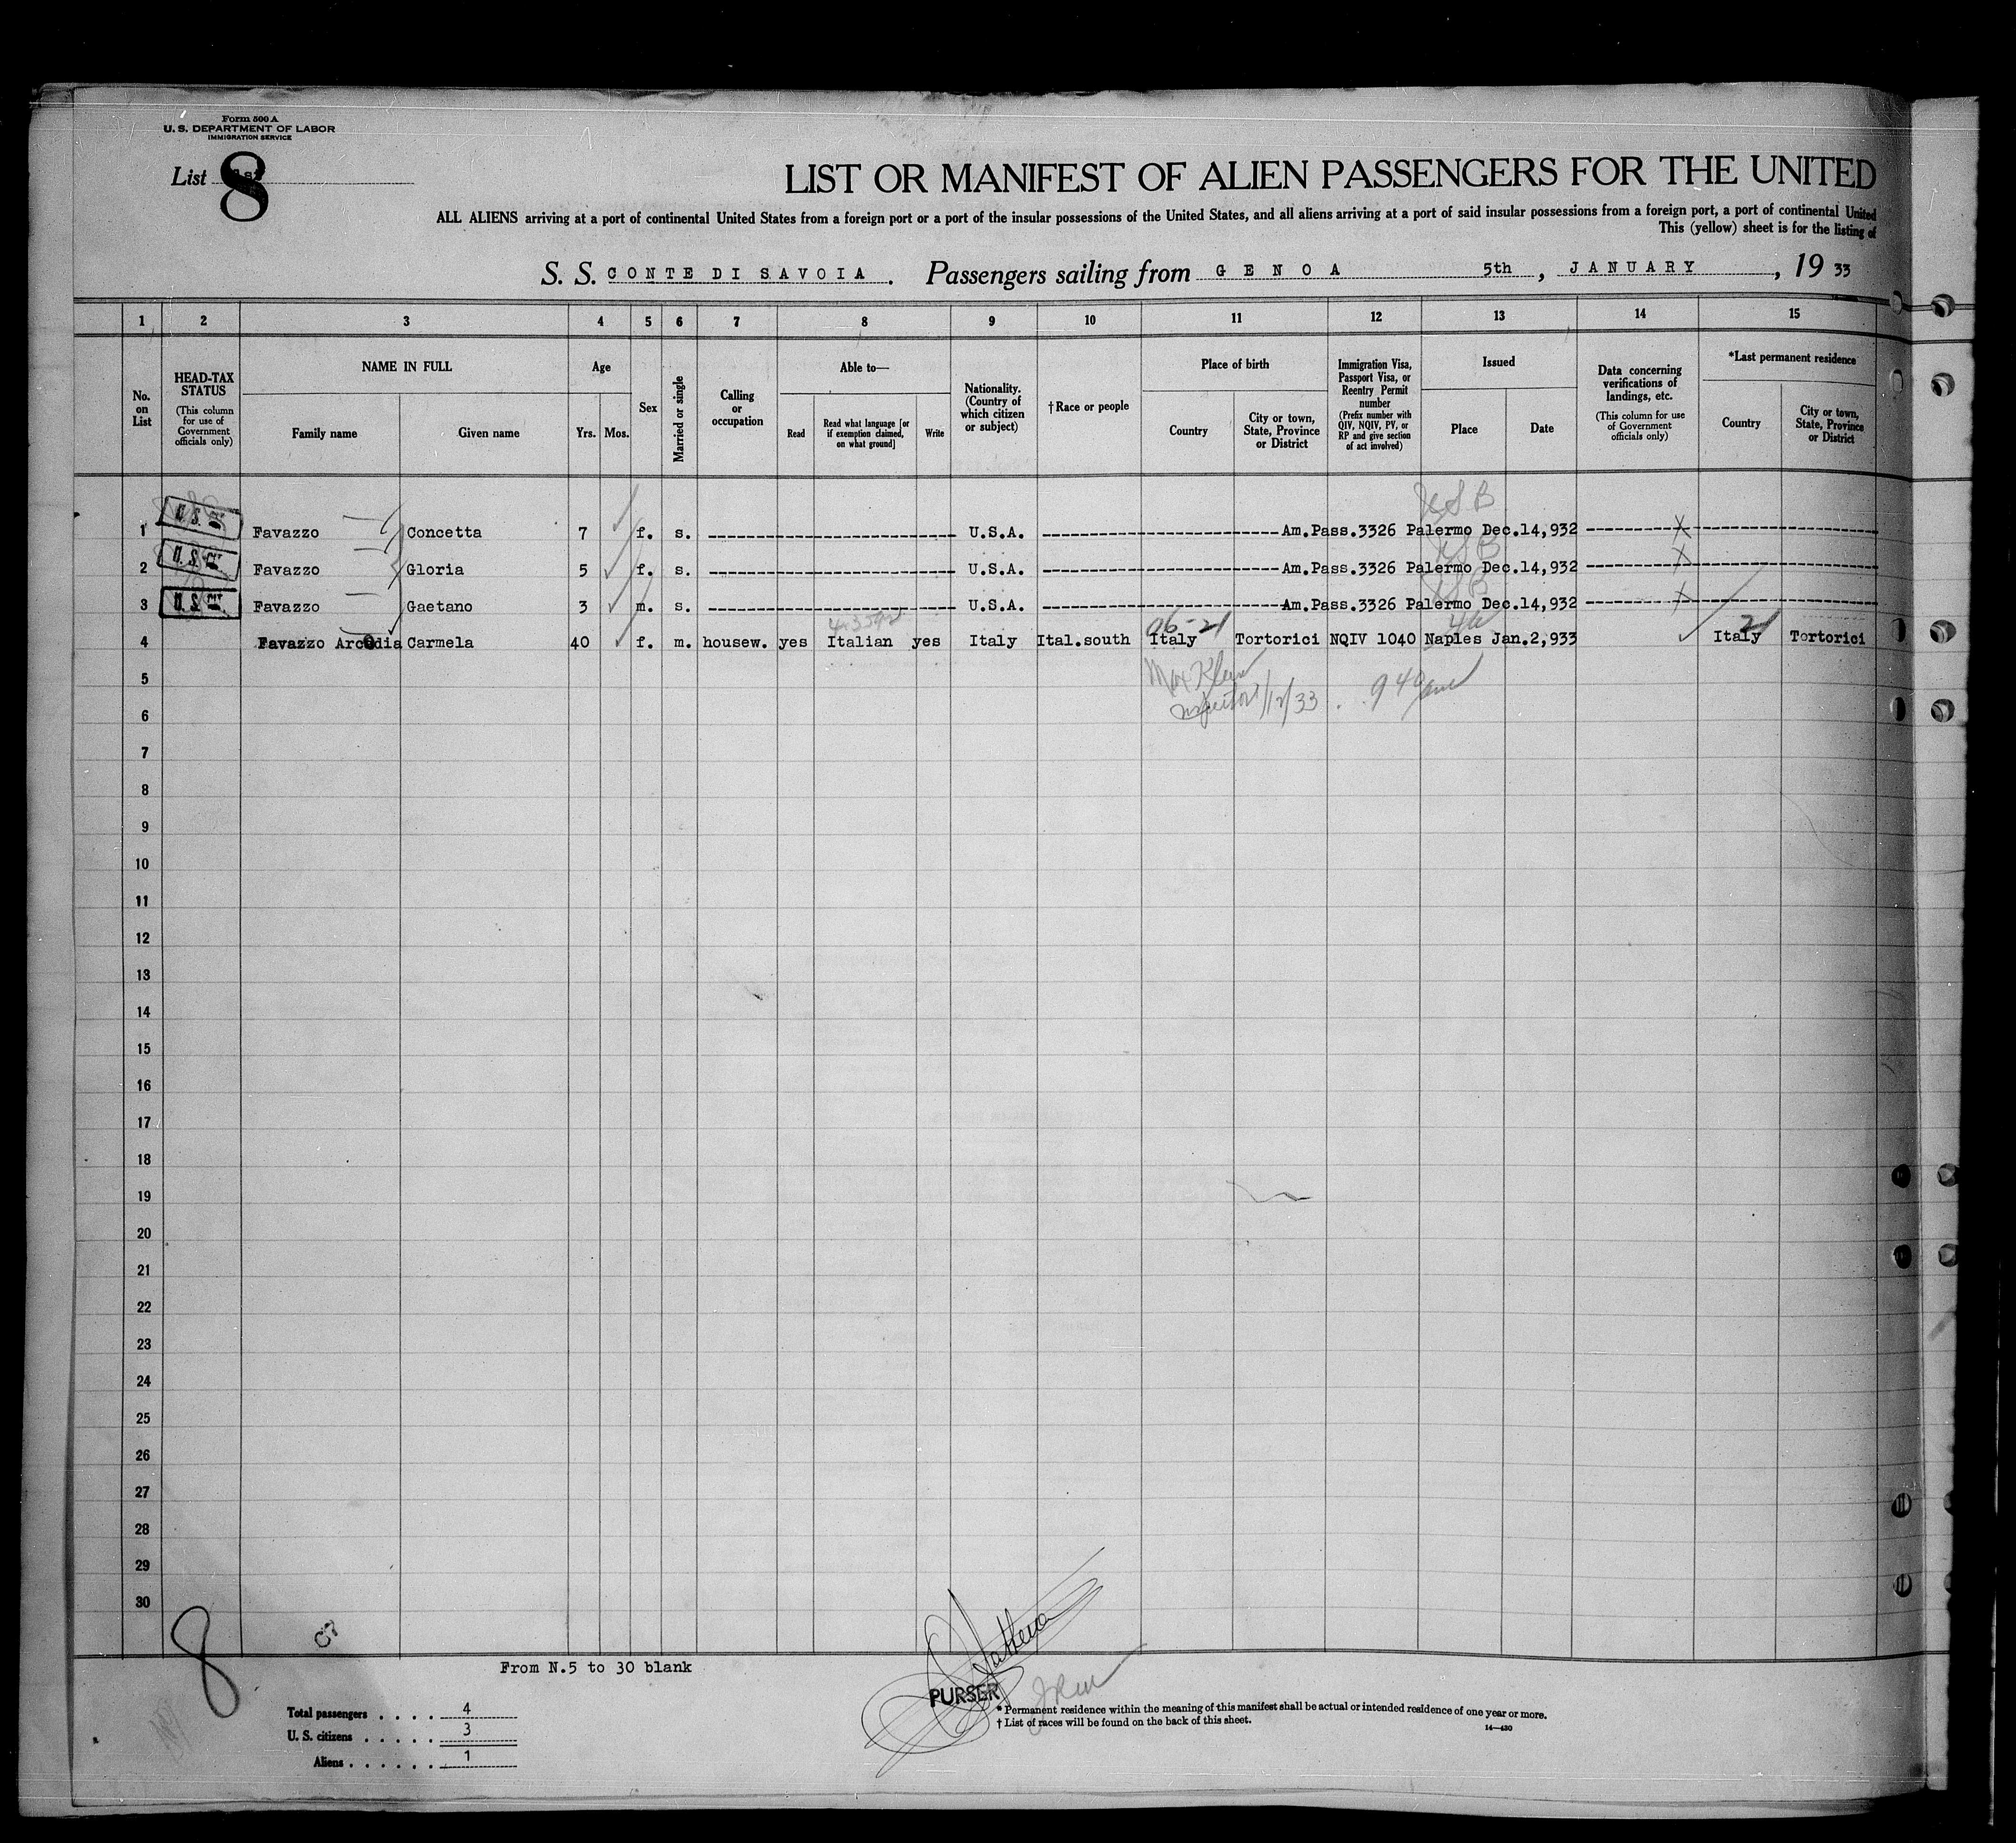 Form 500 A
U. S. DEPARTMENT OF LABOR
IMMIGRATION SERVICE
List 8
LIST OR MANIFEST OF ALIEN PASSENGERS FOR THE UNITED
ALL ALIENS arriving at a port of continental United States from a foreign port or a port of the insular possessions of the United States, and all aliens arriving at a port of said insular possessions from a foreign port, a port of continental United
This (yellow) sheet is for the listing of
S. S. CONTE DI SAVOIA. Passengers sailing from GENOA 5th, JANUARY, 19 33
1 2 3 4 5 6 7 8 9 10 11 12 13 14 15
No. on List
HEAD-TAX STATUS
(This column for use of Government officials only)
NAME IN FULL
Family name
Given name
Age
Yrs.
Mos.
Sex
Married or single
Calling or occupation
Able to—
Read
Read what language [or if exemption claimed, on what ground]
Write
Nationality. (Country of which citizen or subject)
†Race or people
Place of birth
Country
City or town, State, Province or District
Immigration Visa, Passport Visa, or Reentry Permit number
(Prefix number with QIV, NQIV, PV, or RP and give section of act involved)
Issued
Place
Date
Data concerning verifications of landings, etc.
(This column for use of Government officials only)
*Last permanent residence
Country
City or town, State, Province or District
USB
1 U.S. Favazzo Concetta 7 f. s. U.S.A. Am.Pass.3326 Palermo Dec.14,932 X
USB
2 U.S. Favazzo Gloria 5 f. s. U.S.A. Am.Pass.3326 Palermo Dec.14,932 X
USB
3 U.S. Favazzo Gaetano 3 m. s. U.S.A. Am.Pass.3326 Palermo Dec.14,932 X
06-21 21
4 Favazzo Arcodia Carmela 40 f. m. housew. yes Italian yes Italy Ital.south Italy Tortorici NQIV 1040 Naples Jan.2,933 Italy Tortorici
5 Max Klein
6 Inspector 1/12/33
7
8
9
10
11
12
13
14
15
16
17
18
19
20
21
22
23
24
25
26
27
28
29
30
8
From N.5 to 30 blank
PURSER
Total passengers . . . . 4
U. S. citizens . . . . . 3
Aliens . . . . . . 1
* Permanent residence within the meaning of this manifest shall be actual or intended residence of one year or more.
† List of races will be found on the back of this sheet.
14—430